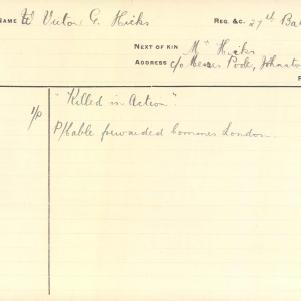 NAME Lt Victor G. Hicks REG. &C. 27th Bat
NEXT OF KIN Mr Hicks
ADDRESS c/o Messrs Poole, Johnsto
"Killed in Action".
P/Cable forwarded Commes London.